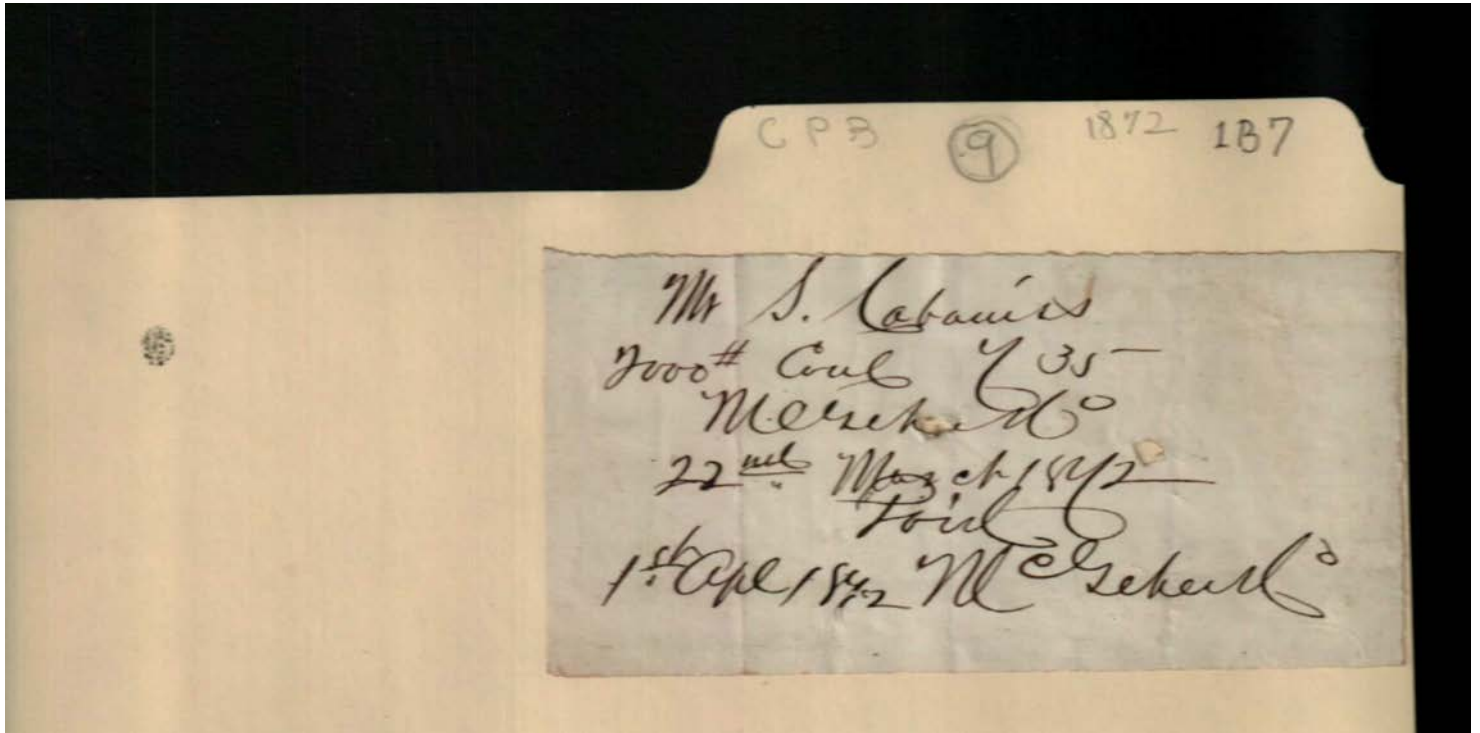 CPB 9 1872 1B7
Mr S. Cabaniss
2000# Coal 7 35
McGehee & Co
22nd March 1872
Paid
1st Apl 1872 McGehee & Co